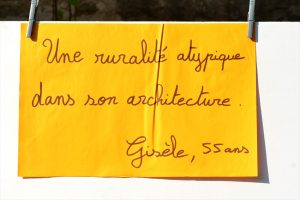 Une ruralité atypique
dans son architecture.
Gisèle, 55 ans